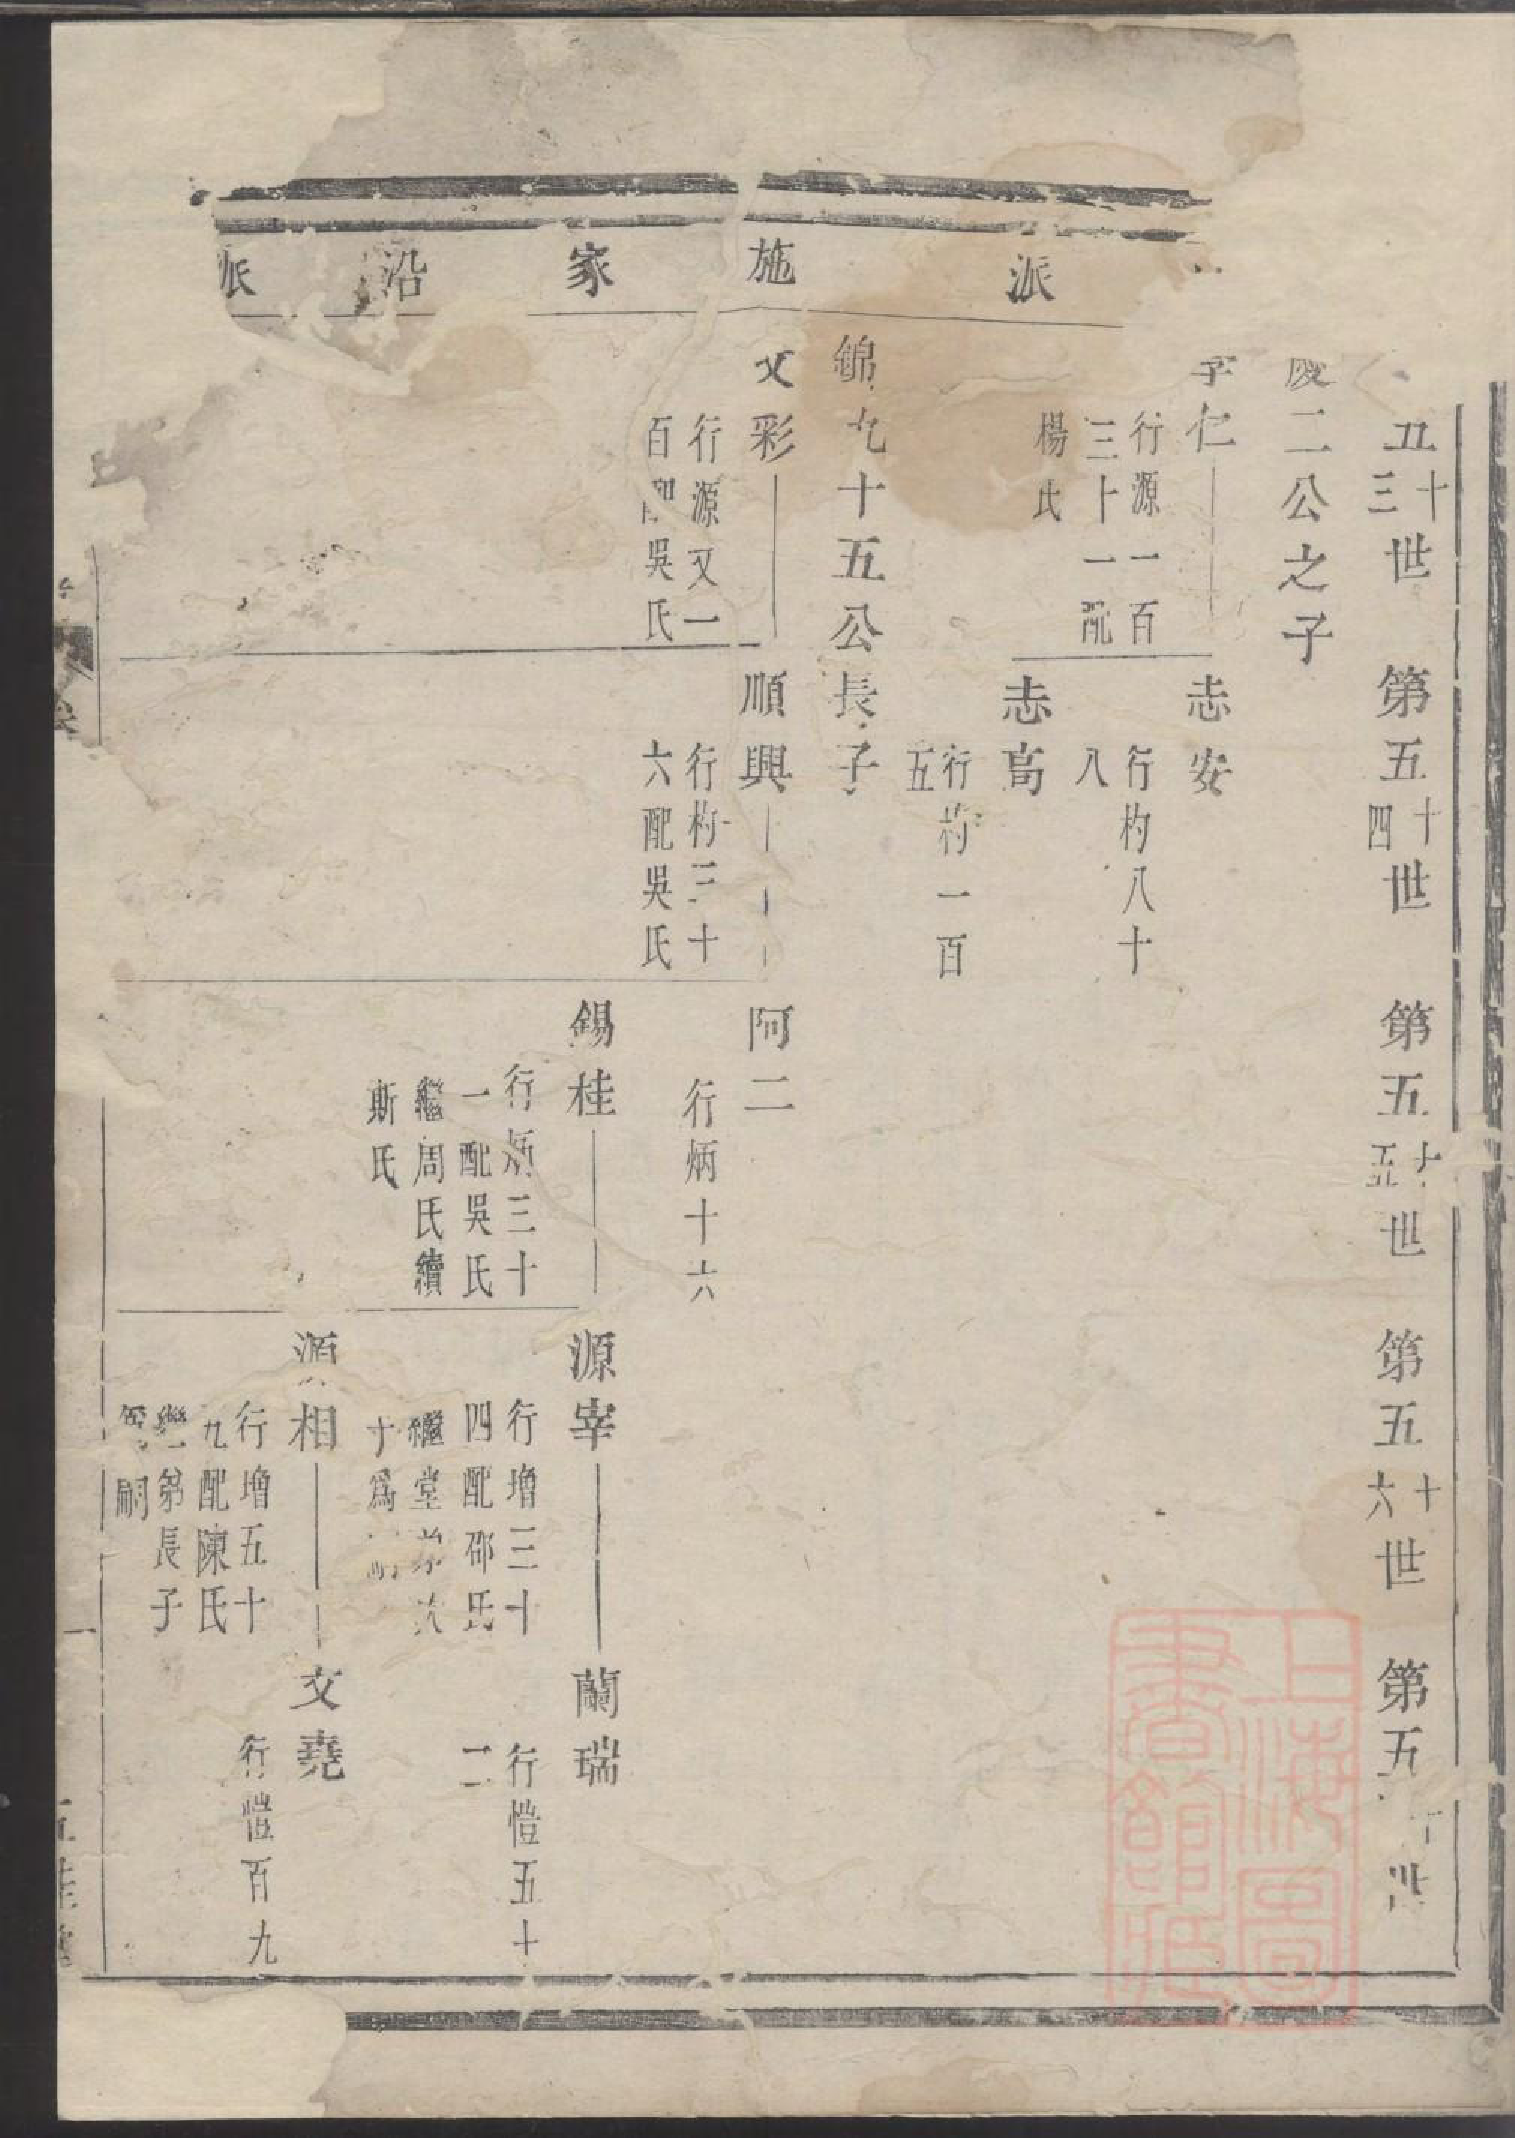 五十三世 第五十四世 第五十五世 第五十六世 第五
二公之子
派
仁
行源一百
三十一配
楊氏
志安
行杓八十
八
志高
行杓一百
五
錦九十五公長子
施家沿派
文彩
行源又一
百 吳氏
順興
行杓三十
六配吳氏
阿二
行炳十六
錫桂
行炳三十
一配吳氏
繼周氏續
斯氏
源宰
行增三十
四配邵氏
繼堂弟次
子爲嗣
蘭瑞
行愷五十
二
源相
行增五十
九配陳氏
繼弟長子
爲嗣
文堯
行愷百九
一
上海圖書館藏